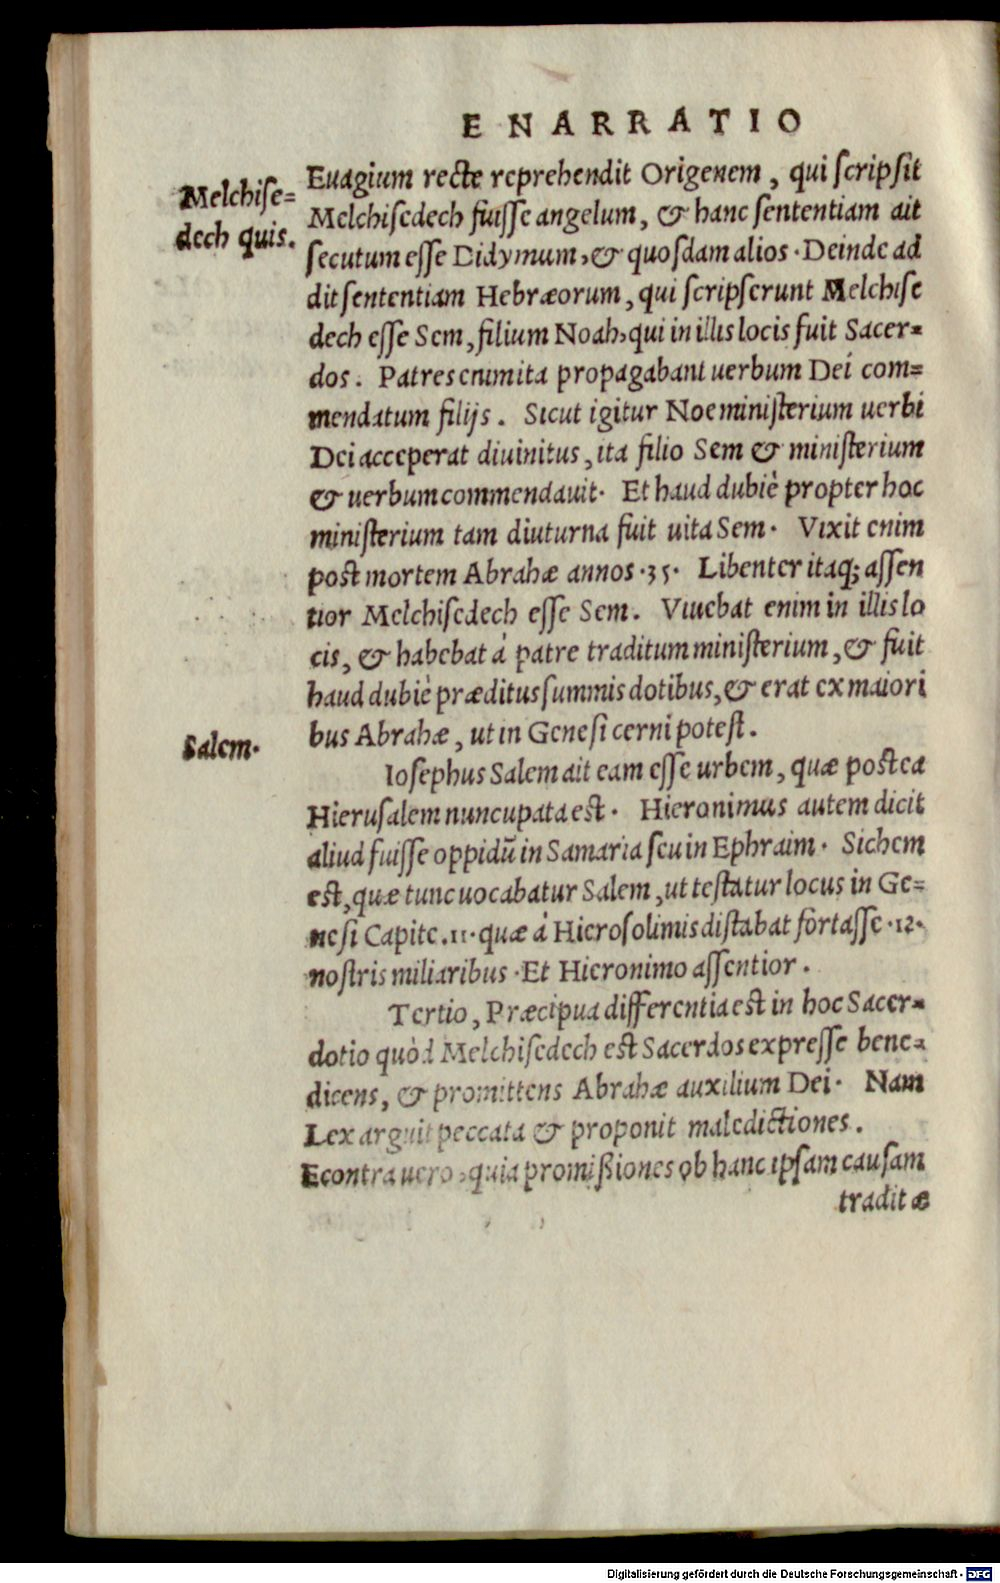 ENARRATIO
Melchise=
dech quis.
Euagium recte reprehendit Origenem, qui scripsit
Melchisedech fuisse angelum, & hanc sententiam ait
secutum esse Didymum, & quosdam alios. Deinde ad
dit sententiam Hebræorum, qui scripserunt Melchise
dech esse Sem, filium Noah, qui in illis locis fuit Sacer=
dos. Patres enim ita propagabant uerbum Dei com=
mendatum filijs. Sicut igitur Noe ministerium uerbi
Dei acceperat diuinitus, ita filio Sem & ministerium
& uerbum commendauit. Et haud dubiè propter hoc
ministerium tam diuturna fuit uita Sem. Vixit enim
post mortem Abrahæ annos .35. Libenter itaq; assen
tior Melchisedech esse Sem. Viuebat enim in illis lo
cis, & habebat à patre traditum ministerium, & fuit
haud dubiè præditus summis dotibus, & erat ex maiori
bus Abrahæ, ut in Genesi cerni potest.
Salem.
Iosephus Salem ait eam esse urbem, quæ postea
Hierusalem nuncupata est. Hieronimus autem dicit
aliud fuisse oppidū in Samaria seu in Ephraim. Sichem
est, quæ tunc uocabatur Salem, ut testatur locus in Ge=
nesi Capite .11. quæ à Hierosolimis distabat fortasse .12.
nostris miliaribus. Et Hieronimo assentior.
Tertio, Præcipua differentia est in hoc Sacer=
dotio quòd Melchisedech est Sacerdos expresse bene=
dicens, & promittens Abrahæ auxilium Dei. Nam
Lex arguit peccata & proponit maledictiones.
Econtra uero, quia promißiones ob hanc ipsam causam
traditæ
Digitalisierung gefördert durch die Deutsche Forschungsgemeinschaft - DFG